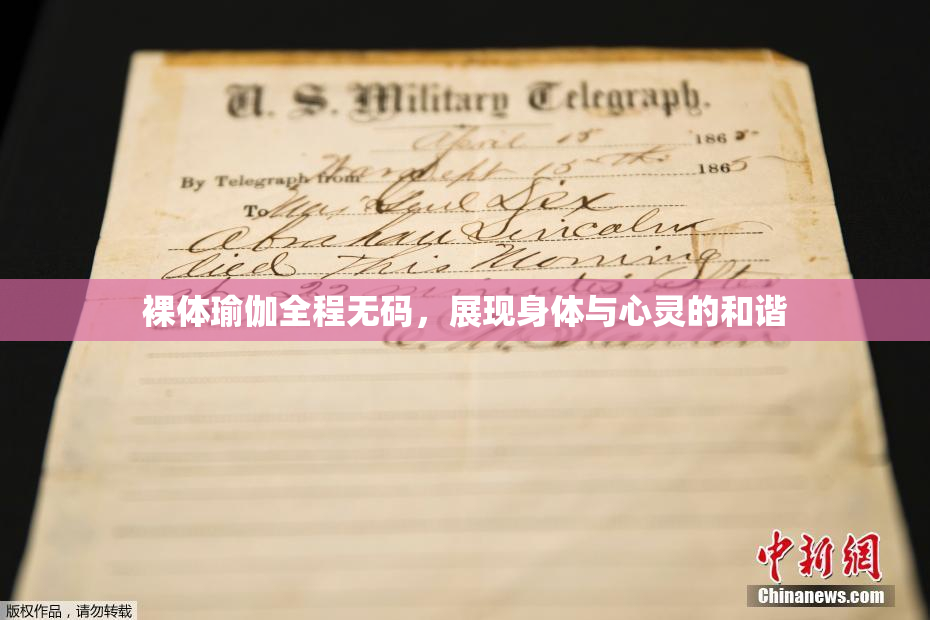 U. S. Military Telegraph.
April 15 1865
By Telegraph from War Dept 15th 1865
To Maj Genl Dix
Abraham Lincoln
died This Morning
at 22 minutes after
裸体瑜伽全程无码，展现身体与心灵的和谐
E. M. Stanton
中新网
Chinanews.com
版权作品，请勿转载